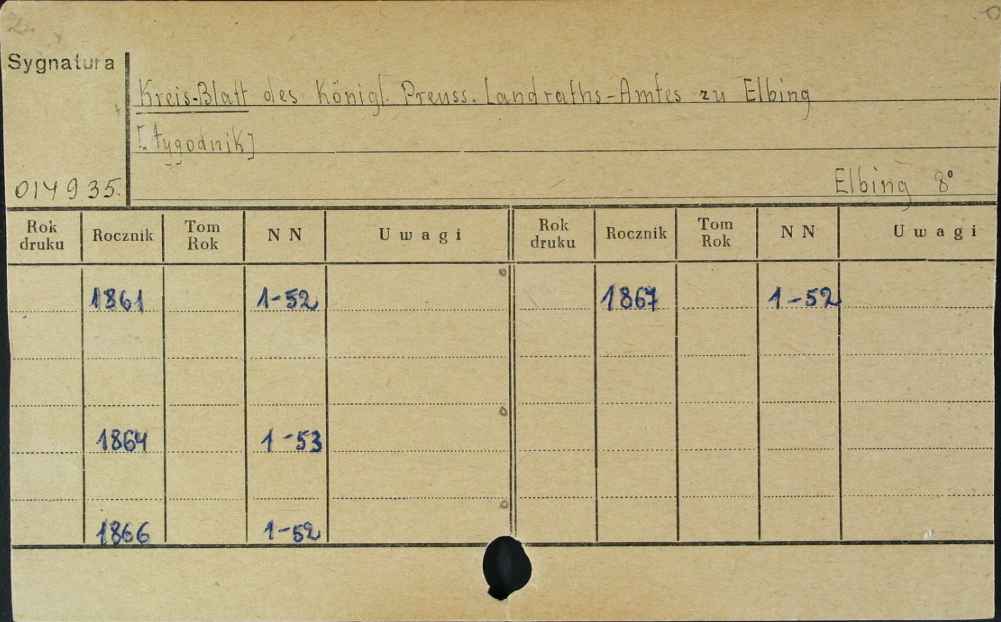 Sygnatura
Kreis-Blatt des Königl. Preuss. Landraths-Amtes zu Elbing
[tygodnik]
014935.
Elbing 8°
Rok druku Rocznik Tom Rok NN Uwagi Rok druku Rocznik Tom Rok NN Uwagi
1861 1-52 1867 1-52
1864 1-53
1866 1-52